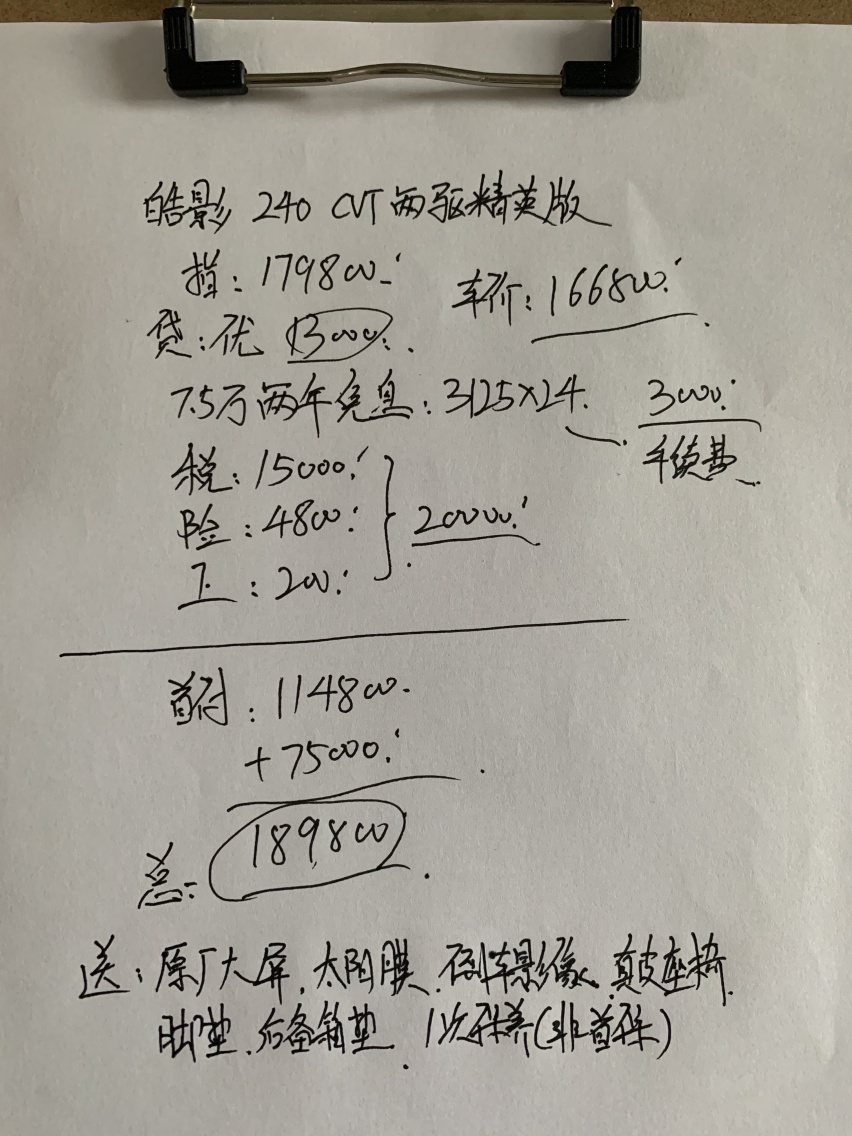 皓影 240 CVT 两驱精英版
指:179800.
车价:166800.
贷:优 13000.
7.5万两年免息:3125×24.
3000.
手续费
税:15000.
险:4800.
20000.
上:200.
首付:114800.
+75000.
总:189800
送:原厂大屏.太阳膜.倒车影像.真皮座椅.
脚垫.后备箱垫.1次保养(非首保)